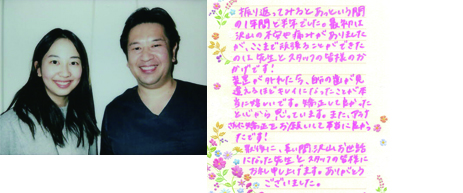 振り返ってみるとあっという間
の1年間と半年でした。最初は
沢山の不安や痛みがありました
が、ここまで頑張ることができた
のは先生とスタッフの皆様のお
かげです!
装置が外れたら、自分の歯が見
違えるほどキレイになったことが本
当に嬉しいです。矯正して良かった
と心から思っています。また、
さんに矯正をお願いして本当に良かっ
たです!
最後に、長い間沢山お世話
になった先生とスタッフの皆様に
お礼申し上げます。ありがとう
ございました。